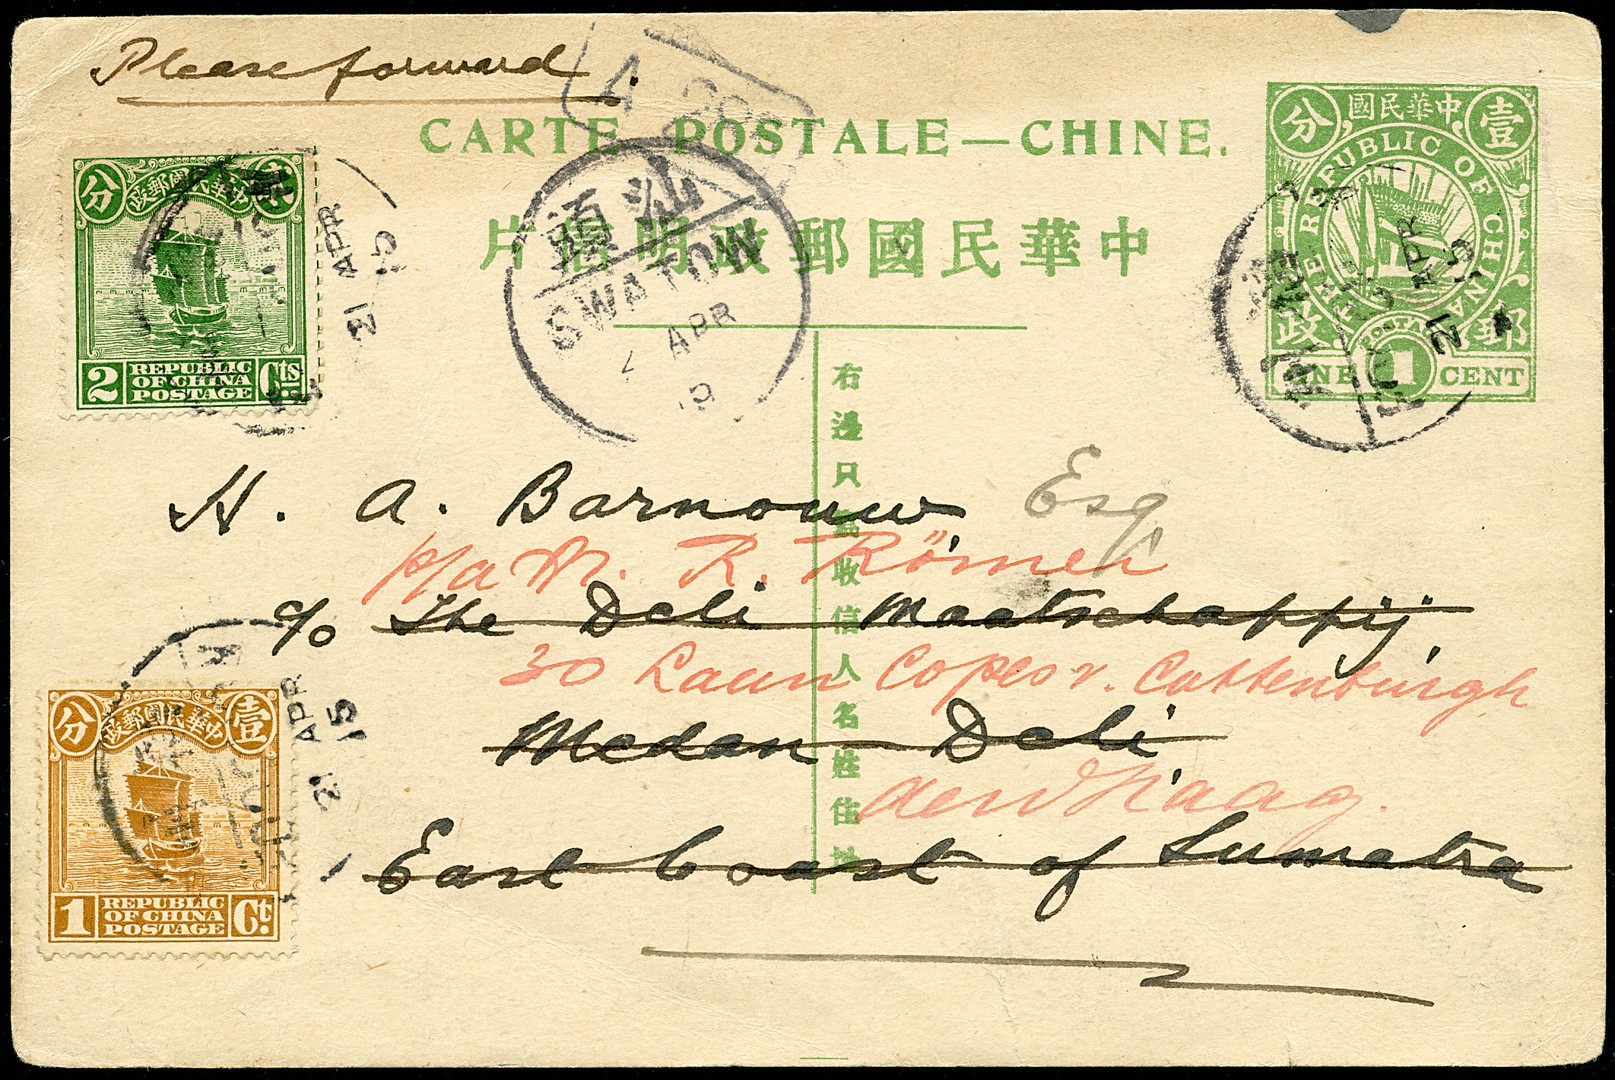 Please forward.
A
CARTE POSTALE—CHINE.
片信明政郵國民華中
分 中華民國 壹
THE REPUBLIC OF CHINA
政 POSTAGE 郵
ONE 1 CENT
21 APR 15
分 政郵國民華中
2 REPUBLIC OF CHINA POSTAGE Cts.
21 APR 15
SWATOW
APR
右邊只寫收信人名姓住址
H. A. Barnouw Esq.
p/a M. R. Römer
c/o The Deli Maatschappij,
30 Laan Copes v. Cattenburgh
Medan Deli
den Haag.
East Coast of Sumatra
分 政郵國民華中 壹
1 REPUBLIC OF CHINA POSTAGE Ct.
21 APR 15